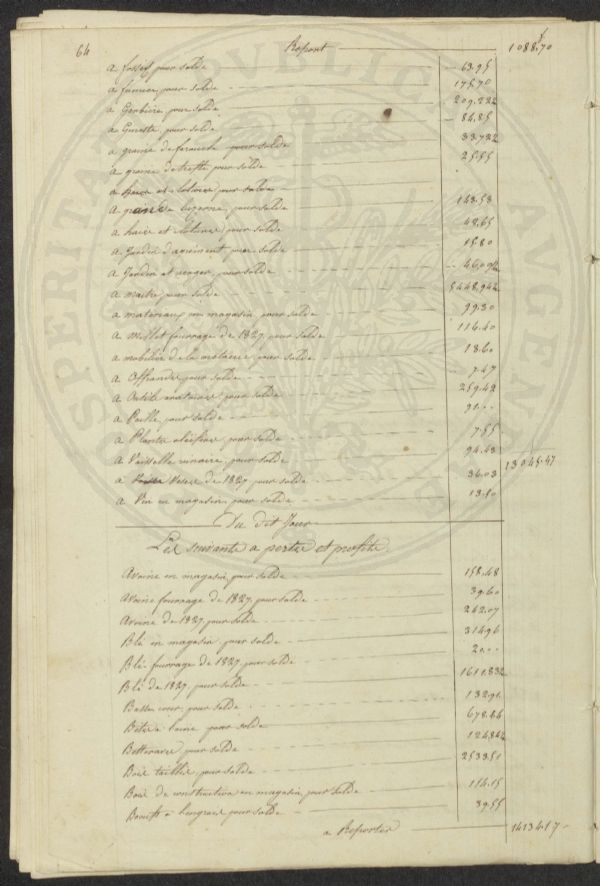 64 Report 1088.70
a fosses pour solde 63.95
a fumier, pour solde 175.70
a Gerbière, pour solde 209.222
a Guesette, pour solde 84.85
a graine de farouche pour solde 33.722
a graine de treffle pour solde 25.55
a haies et clotures, pour solde
a graine luzerne, pour solde 143.53
a haies et clotures, pour solde 48.65
a Jardin d'agrément pour solde 15.80
a Jardin et verger, pour solde
a maitre pour solde 5448.942
a materiaux en magasin, pour solde 99.30
a Millet fourrage de 1827, pour solde 116.40
a mobilier de la métairie, pour solde 18.60
a Offrandes, pour solde 7.47
a Outils aratoires, pour solde 259.42
a Paille, pour solde 91..
a Plantes oléifères pour solde 7.55
a Vaisselle vinaire, pour solde 94.43
a Vesce de 1827, pour solde 36.03 13045.47
a Vin en magasin, pour solde 13.10
Du dit Jour
Les suivants a pertes et profits
Avoine en magasin, pour solde 158.48
Avoine fourrage de 1827, pour solde 39.60
Avoine de 1827, pour solde 242.07
Blé en magasin, pour solde 314.96
Blé fourrage de 1827, pour solde 20..
Blé de 1827, pour solde 1611.832
Basse cour, pour solde 132.91
Bêtes a laine, pour solde 678.84
Betteraves, pour solde
Bois taillis, pour solde 2533.51
Bois de construction en magasin, pour solde 114.15
Boeufs a l'engrais, pour solde 39.55
a Reporter 14134.17